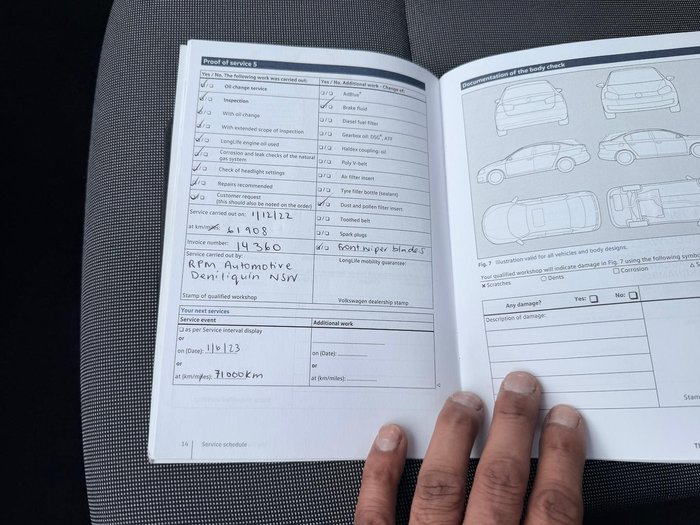 Proof of service 5
Yes / No. The following work was carried out:
Oil change service
Inspection
With oil change
With extended scope of inspection
LongLife engine oil used
Corrosion and leak checks of the natural
gas system
Check of headlight settings
Repairs recommended
Customer request
(this should also be noted on the order)
Service carried out on: 1/12/22
at km/miles: 61908
Invoice number: 14360
Service carried out by:
RPM Automotive
Deniliquin NSW
Stamp of qualified workshop
Yes / No. Additional work - Change of:
AdBlue®
Brake fluid
Diesel fuel filter
Gearbox oil: DSG®, ATF
Haldex coupling: oil
Poly V-belt
Air filter insert
Tyre filler bottle (sealant)
Dust and pollen filter insert
Toothed belt
Spark plugs
front wiper blades
LongLife mobility guarantee:
Volkswagen dealership stamp
Your next services
Service event
as per Service interval display
or
on (Date): 1/6/23
or
at (km/miles): 71000km
Additional work
on (Date):
or
at (km/miles):
14 Service schedule
Documentation of the body check
Fig. 7 Illustration valid for all vehicles and body designs.
Your qualified workshop will indicate damage in Fig. 7 using the following
x Scratches
Dents
Corrosion
Any damage? Yes: No:
Description of damage: